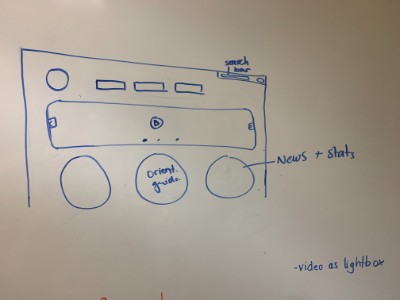 search
bar
Orient.
guide
News + Stats
-video as lightbox